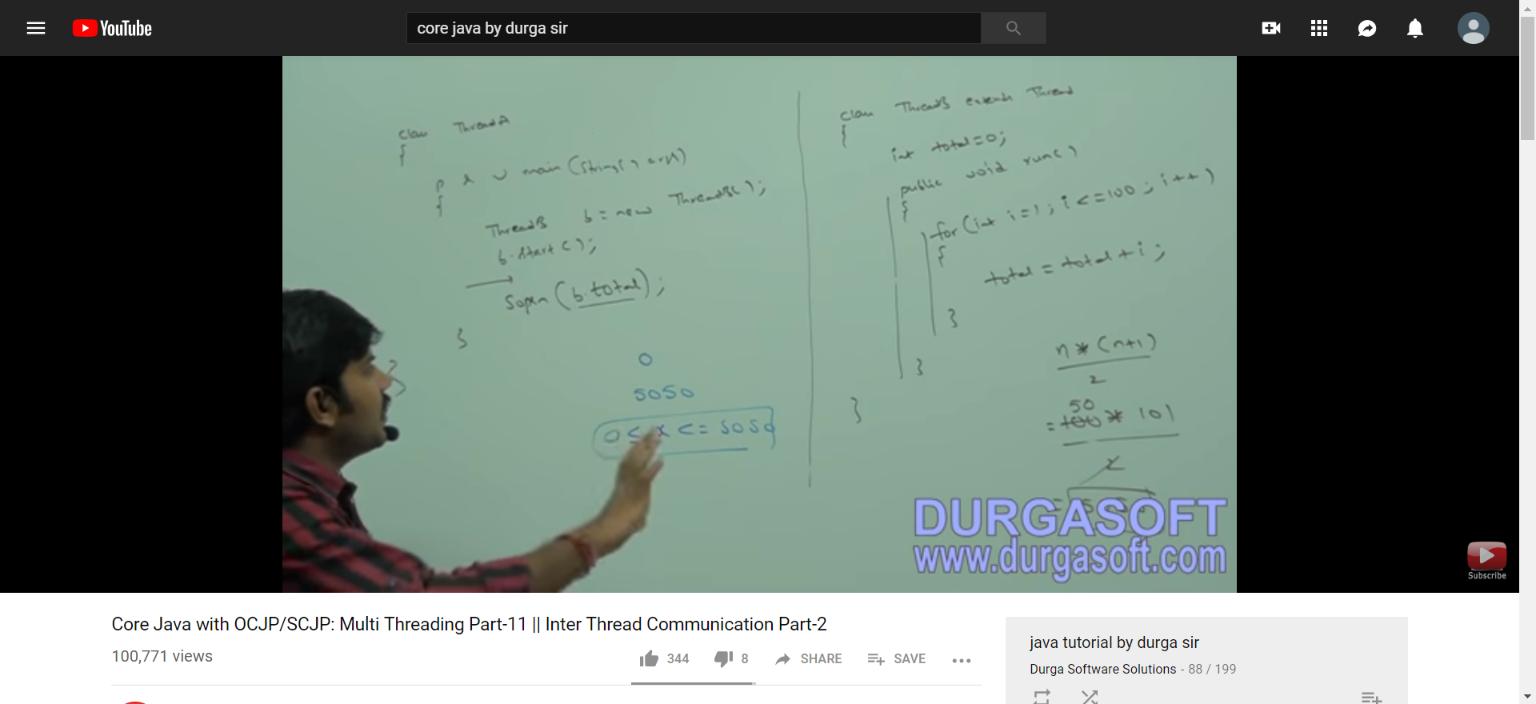 YouTube
core java by durga sir
class ThreadA
{
p s v main(String[] args)
{
ThreadB b = new ThreadB();
b.start();
Sopln(b.total);
}
}
0
5050
0 <= x <= 5050
class ThreadB extends Thread
{
int total=0;
public void run()
{
for(int i=1; i<=100; i++)
{
total = total + i;
}
}
}
n*(n+1)
2
50
= 100 * 101
2
=
DURGASOFT
www.durgasoft.com
Subscribe
Core Java with OCJP/SCJP: Multi Threading Part-11 || Inter Thread Communication Part-2
100,771 views
344
8
SHARE
SAVE
java tutorial by durga sir
Durga Software Solutions - 88 / 199